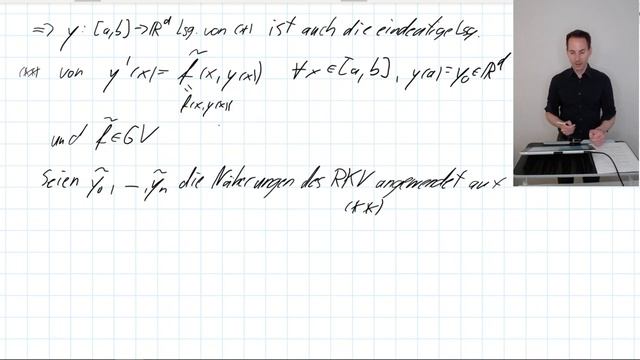 ⇒ y: [a,b]→ℝᵈ Lsg. von (*) ist auch die eindeutige Lsg.
(**) von y'(x) = f̃(x, y(x)) ∀x∈[a,b], y(a)=y₀∈ℝᵈ
f(x,y(x))
und f̃∈GV
Seien ỹ₀, –, ỹₙ die Näherungen des RKV angewendet auf
(**)